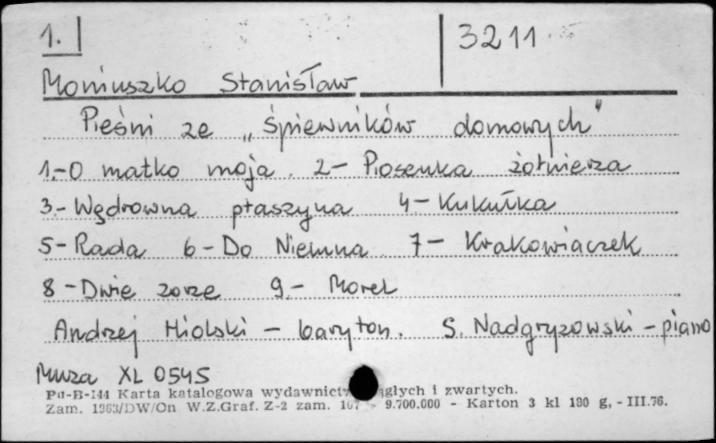 1. 3211
Moniuszko Stanisław
Pieśni ze „Śpiewników domowych"
1.-O matko moja. 2- Piosenka żołnierza
3.- Wędrowna ptaszyna 4- Kukułka
5- Rada 6- Do Niemna 7- Krakowiaczek
8 -Dwie zorze 9.- Morel
Andrzej Hiolski - baryton. S. Nadgryzowski - piano
Muza XL 0545
Pu-B-144 Karta katalogowa wydawnictw ciągłych i zwartych.
Zam. 1963/DW/On W.Z.Graf. Z-2 zam. 9.700.000 - Karton 3 kl 180 g. - III.76.